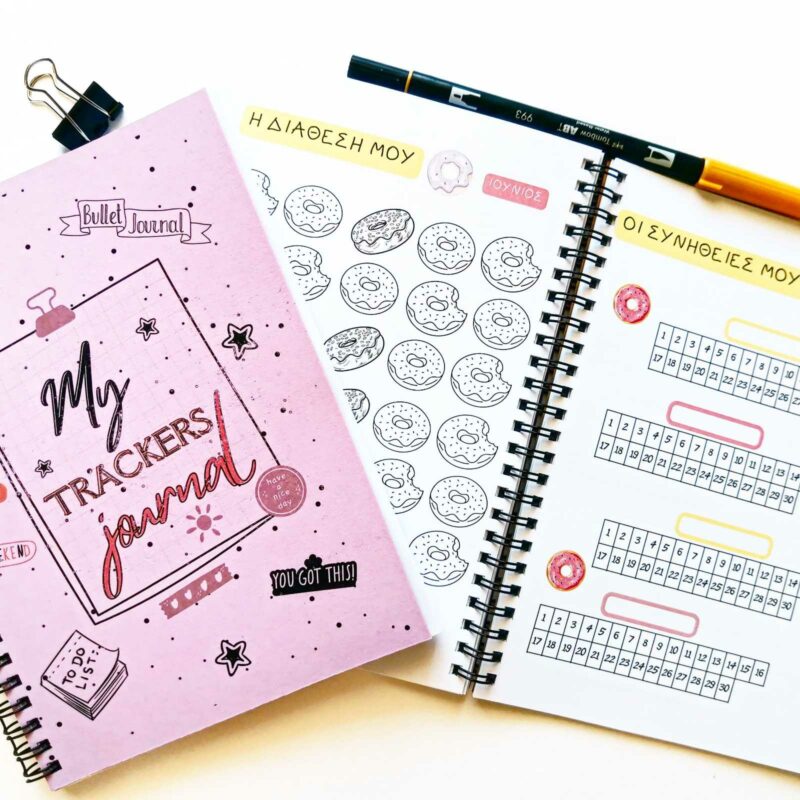 Bullet Journal
My
TRACKERS
journal
have
a
nice
day
EKEND
YOU GOT THIS!
TO DO
LIST:
Η ΔΙΑΘΕΣΗ ΜΟΥ
ΙΟΥΝΙΟΣ
993
Tombow ABT
ΟΙ ΣΥΝΗΘΕΙΕΣ ΜΟΥ
1 2 3 4 5 6 7 8 9 10
17 18 19 20 21 22 23 24 25 26
1 2 3 4 5 6 7 8 9 10 11 12 13 14
17 18 19 20 21 22 23 24 25 26 27 28 29 30
1 2 3 4 5 6 7 8 9 10 11 12 13
17 18 19 20 21 22 23 24 25 26 27 28 29 30
1 2 3 4 5 6 7 8 9 10 11 12 13 14 15 16
17 18 19 20 21 22 23 24 25 26 27 28 29 30